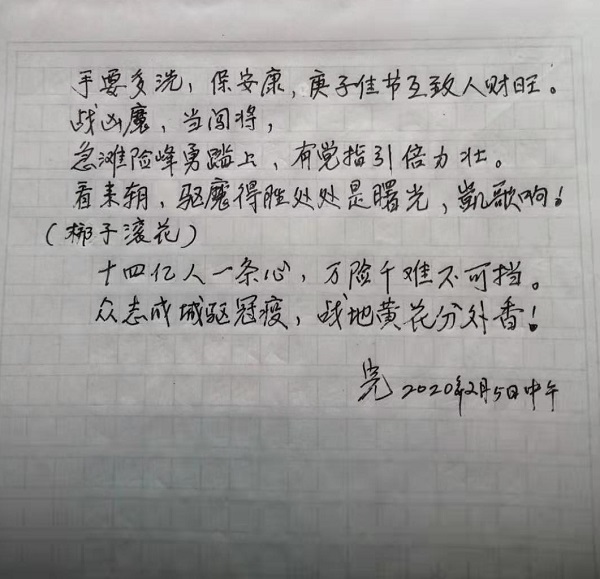 手要多洗，保安康，庚子佳节互致人财旺。
战凶魔，当闯将，
急滩险峰勇踏上，有党指引倍力壮。
看来朝，驱魔得胜处处是曙光，凱歌响！
（梆子滚花）
十四亿人一条心，万险千难不可挡。
众志成城驱冠疫，战地黄花分外香！
完 2020年2月5日中午